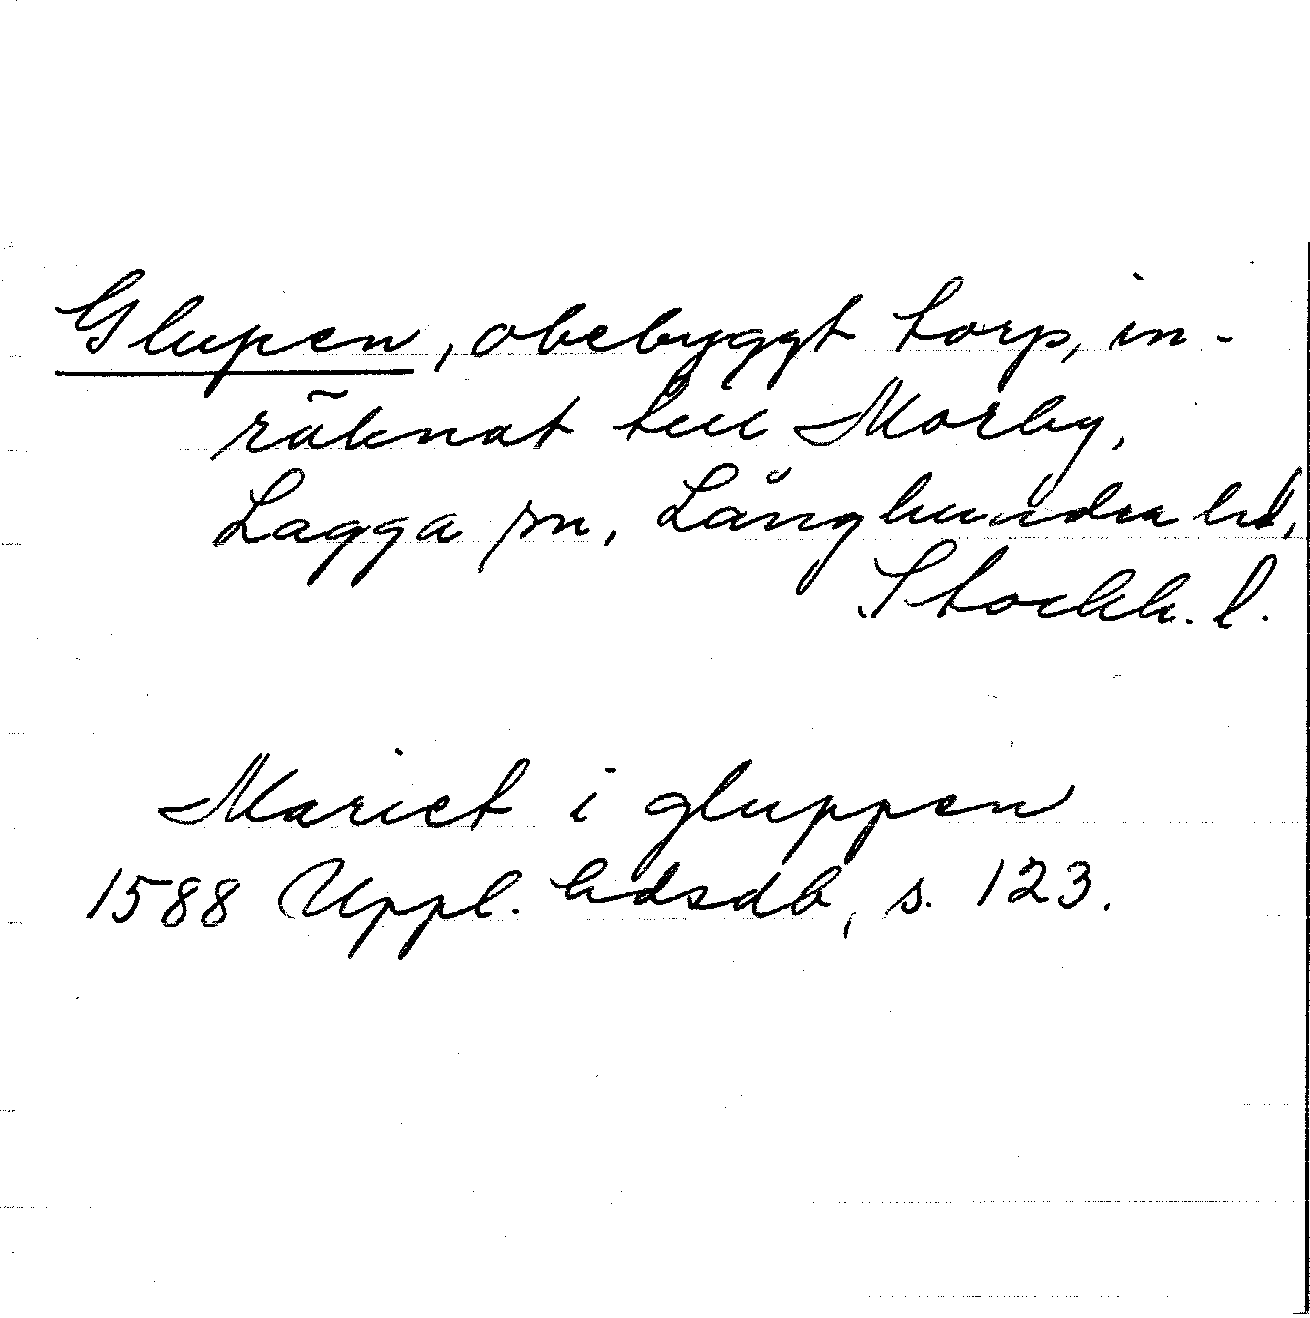 Glupen, obebyggt torp, in-
räknat till Morby,
Lagga sn, Långhundra hd,
Stockh. l.
Mariet i gluppen
1588 Uppl. hdsdb, s. 123.